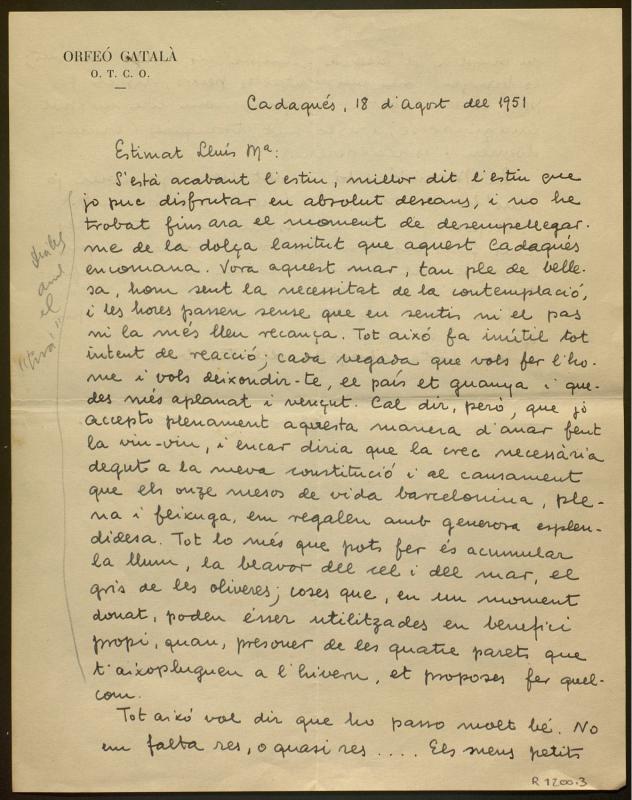 ORFEÓ CATALÀ
O. T. C. O.
Cadaqués, 18 d'agost del 1951
Estimat Lluís Mª:
S'està acabant l'estiu, millor dit l'estiu que
jo puc disfrutar en absolut descans, i no he
trobat fins ara el moment de desempellegar-
me de la dolça lassitut que aquest Cadaqués
encomana. Vora aquest mar, tan ple de belle-
sa, hom sent la necessitat de la contemplació,
i les hores passen sense que en sentis ni el pas
ni la més lleu recança. Tot aixó fa inútil tot
intent de reacció; cada vegada que vols fer l'ho-
me i vols deixondir-te, el país et guanya i que-
des més aplanat i vençut. Cal dir, però, que jo
accepto plenament aquesta manera d'anar fent
la viu-viu, i encar diria que la crec necessària
degut a la meva constitució i al cansament
que els onze mesos de vida barcelonina, ple-
na i feixuga, em regalen amb generosa esplen-
didesa. Tot lo més que pots fer és acumular
la llum, la blavor del cel i del mar, el
gris de les oliveres; coses que, en un moment
donat, poden ésser utilitzades en benefici
propi, quan, presoner de les quatre parets que
t'aixopluguen a l'hivern, et proposes fer quel-
com.
Tot aixó vol dir que ho passo molt bé. No
em falta res, o quasi res .... Els meus petits
amb
el
R 1200.3